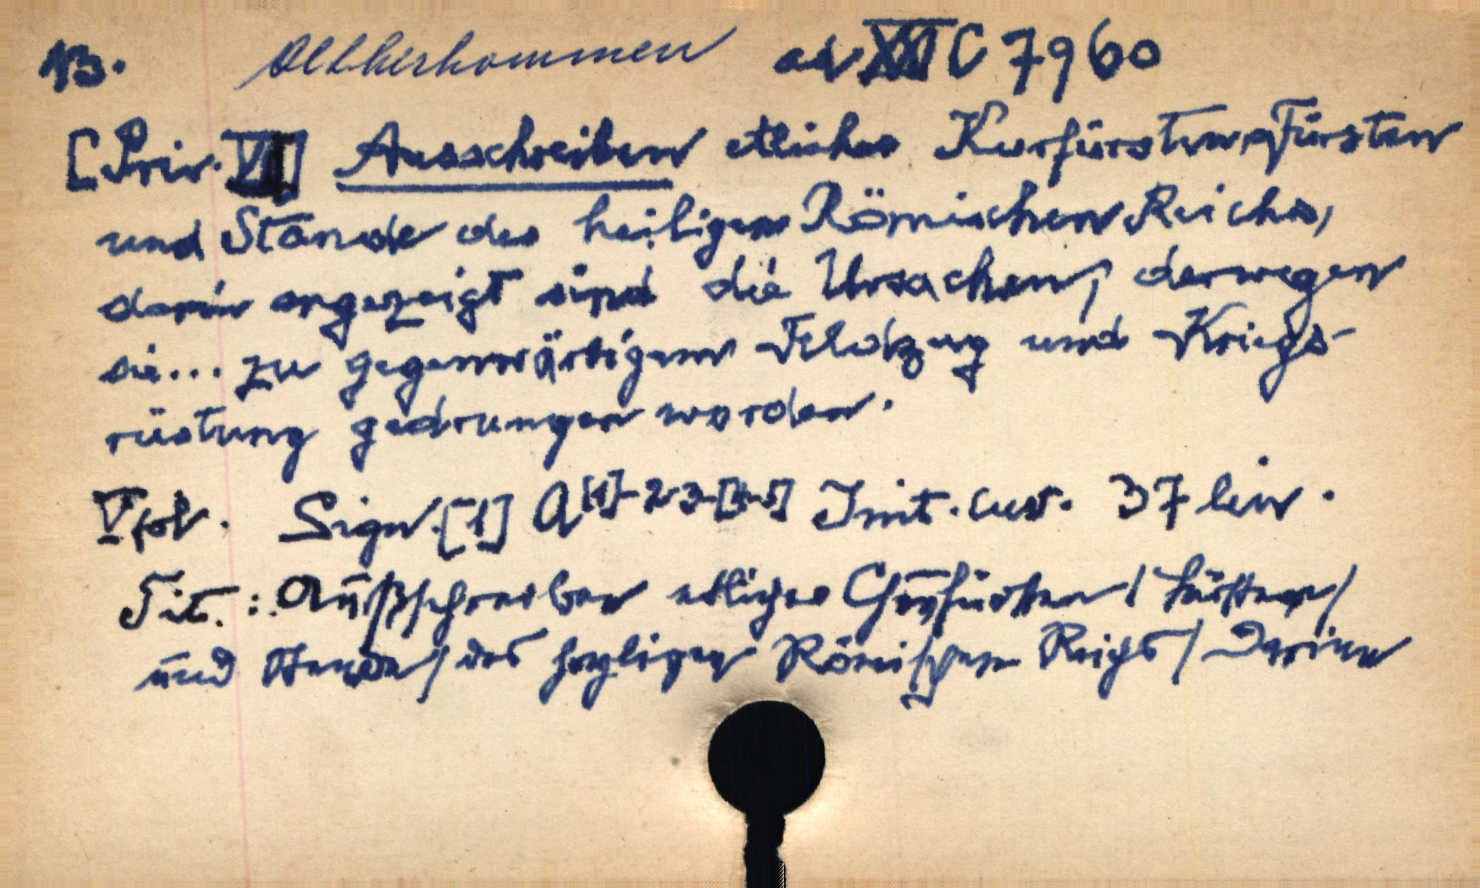 13. Altherkommen ad XXI C 7960
[Priv. VI] Ausschreiben etliches Kurfürsten, Fürsten
und Stände des heiligen Römischen Reichs,
darin angezeigt sind die Ursachen, derwegen
sie... zu gegenwärtigem Feldzug und Kriegs-
rüstung gedrungen worden.
V fol. Sign. [1] A[1]-2-3-[4-5] Init. cust. 37 lin.
Tit.: Außschreiben etliches Churfürsten / Fürsten /
und Stende / des heyligen Römischen Reichs / Darinn